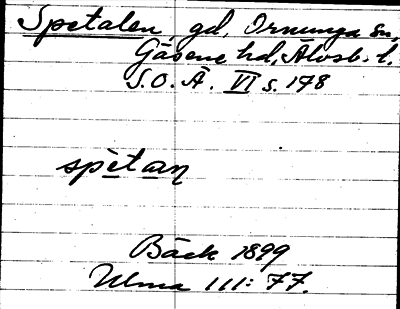 Spetalen, gd, Ornunga sn,
Gäsene hd, Älvsb. l.
S.O.Ä. VI s. 178
spètan
Bäck 1899
Ulma 111: 77.